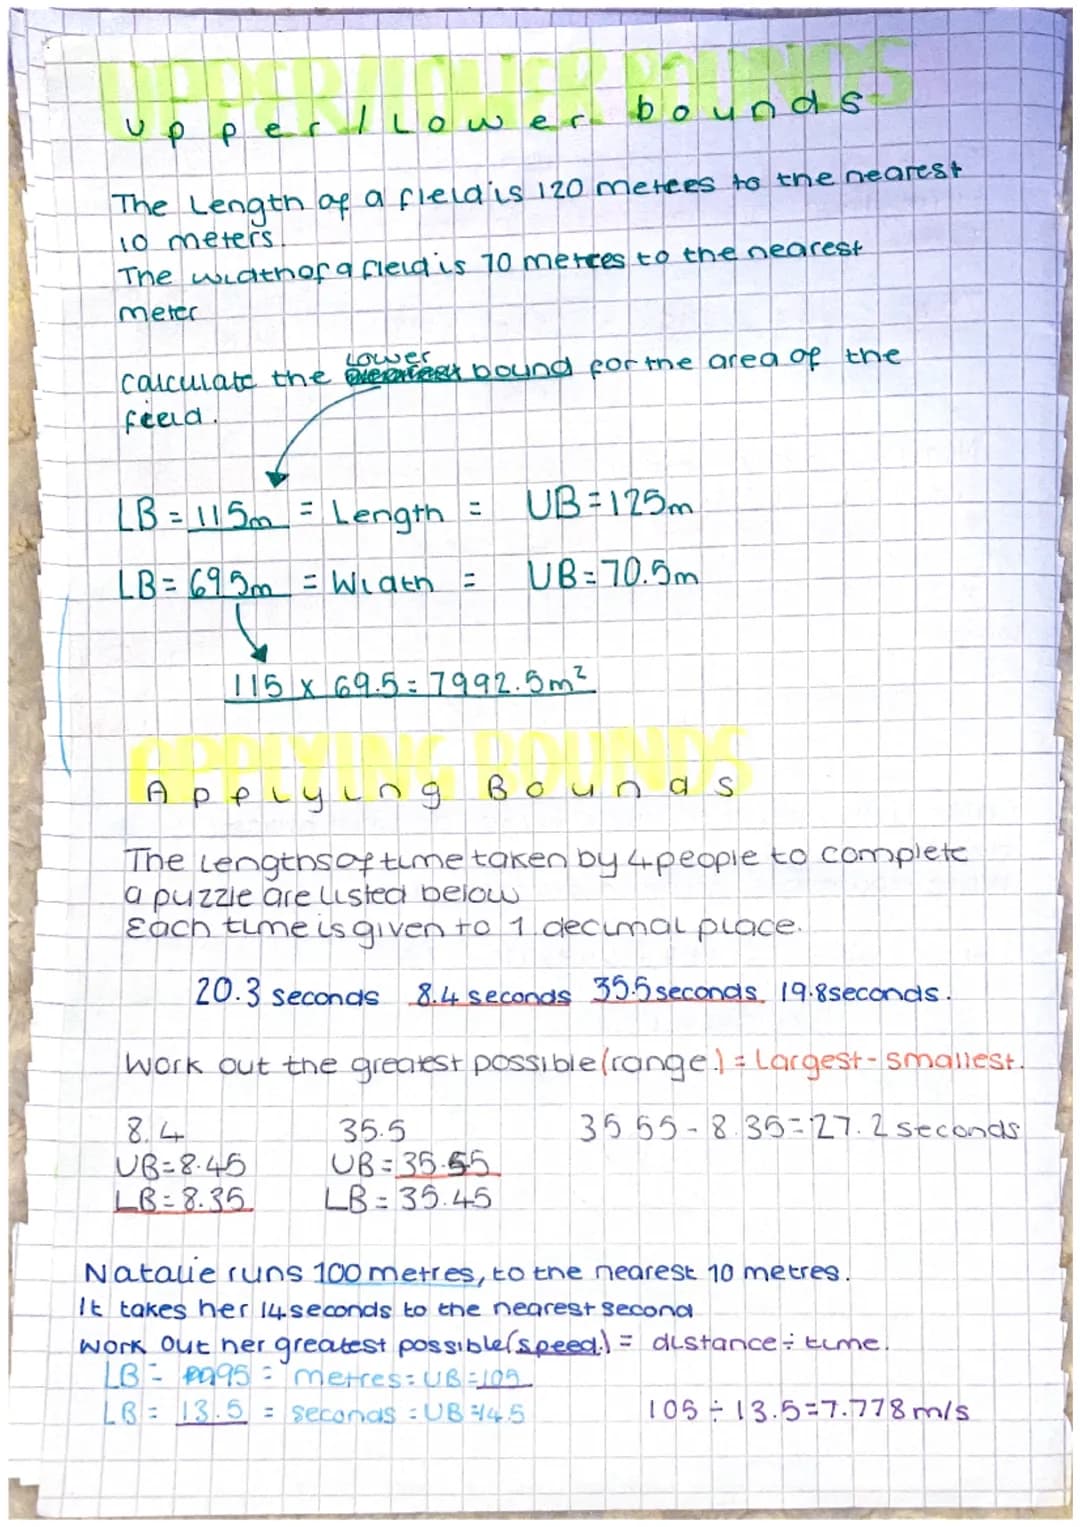 UPPER/LOWER BOUNDS
Upper / Lower bounds
The Length of a field is 120 metees to the nearest
10 meters.
The width of a field is 70 metres to the nearest
meter
Lower
calculate the bound for the area of the
feeld.
LB = 115m = Length = UB = 125m
LB = 69.5m = Width = UB = 70.5m
115 x 69.5 = 7992.5m²
APPLYING BOUNDS
Applying Bounds
The Lengths of time taken by 4 people to complete
a puzzle are listed below
Each time is given to 1 decimal place.
20.3 seconds 8.4 seconds 35.5 seconds 19.8 seconds.
Work out the greatest possible (range.) = Largest - smallest.
8.4 35.5 35.55 - 8.35 = 27.2 seconds
UB = 8.45 UB = 35.55
LB = 8.35 LB = 35.45
Natalie runs 100 metres, to the nearest 10 metres.
It takes her 14 seconds to the nearest second
Work out her greatest possible (speed.) = distance ÷ time.
LB = 95 = metres = UB = 105
LB = 13.5 = seconds = UB = 14.5 105 ÷ 13.5 = 7.778 m/s